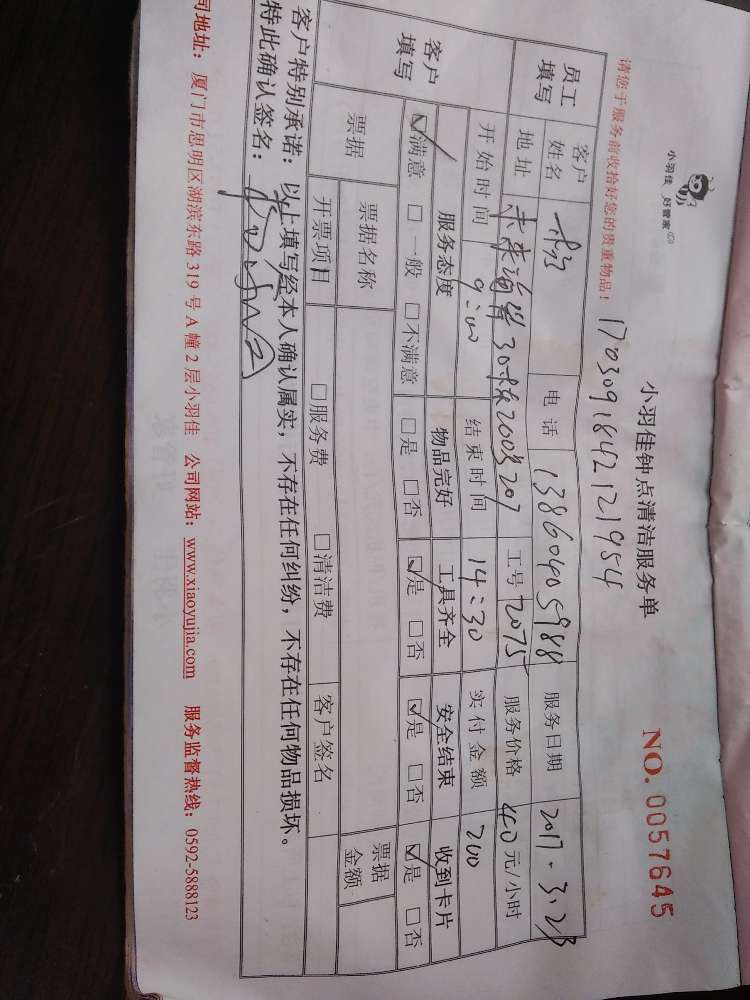 小羽佳 好管家
小羽佳钟点清洁服务单
NO. 0057645
请您于服务前收拾好您的贵重物品！ 170309184212 1954
员工填写 客户姓名 电话 13860405988 服务日期 2017.3.23
地址 未来海岸30号楼2003 207 工号 2075 服务价格 40 元/小时
开始时间 9:00 结束时间 14:30 实付金额 200
客户填写 服务态度 物品完好 工具齐全 安全结束 收到卡片
☑满意 □一般 □不满意 □是 □否 ☑是 □否 ☑是 □否 ☑是 □否
票据 票据名称 票据金额
开票项目 □服务费 □清洁费 客户签名
客户特别承诺：以上填写经本人确认属实，不存在任何纠纷，不存在任何物品损坏。
特此确认签名：
司地址： 厦门市思明区湖滨东路 319 号 A 幢 2 层小羽佳 公司网站：www.xiaoyujia.com 服务监督热线：0592-5888123